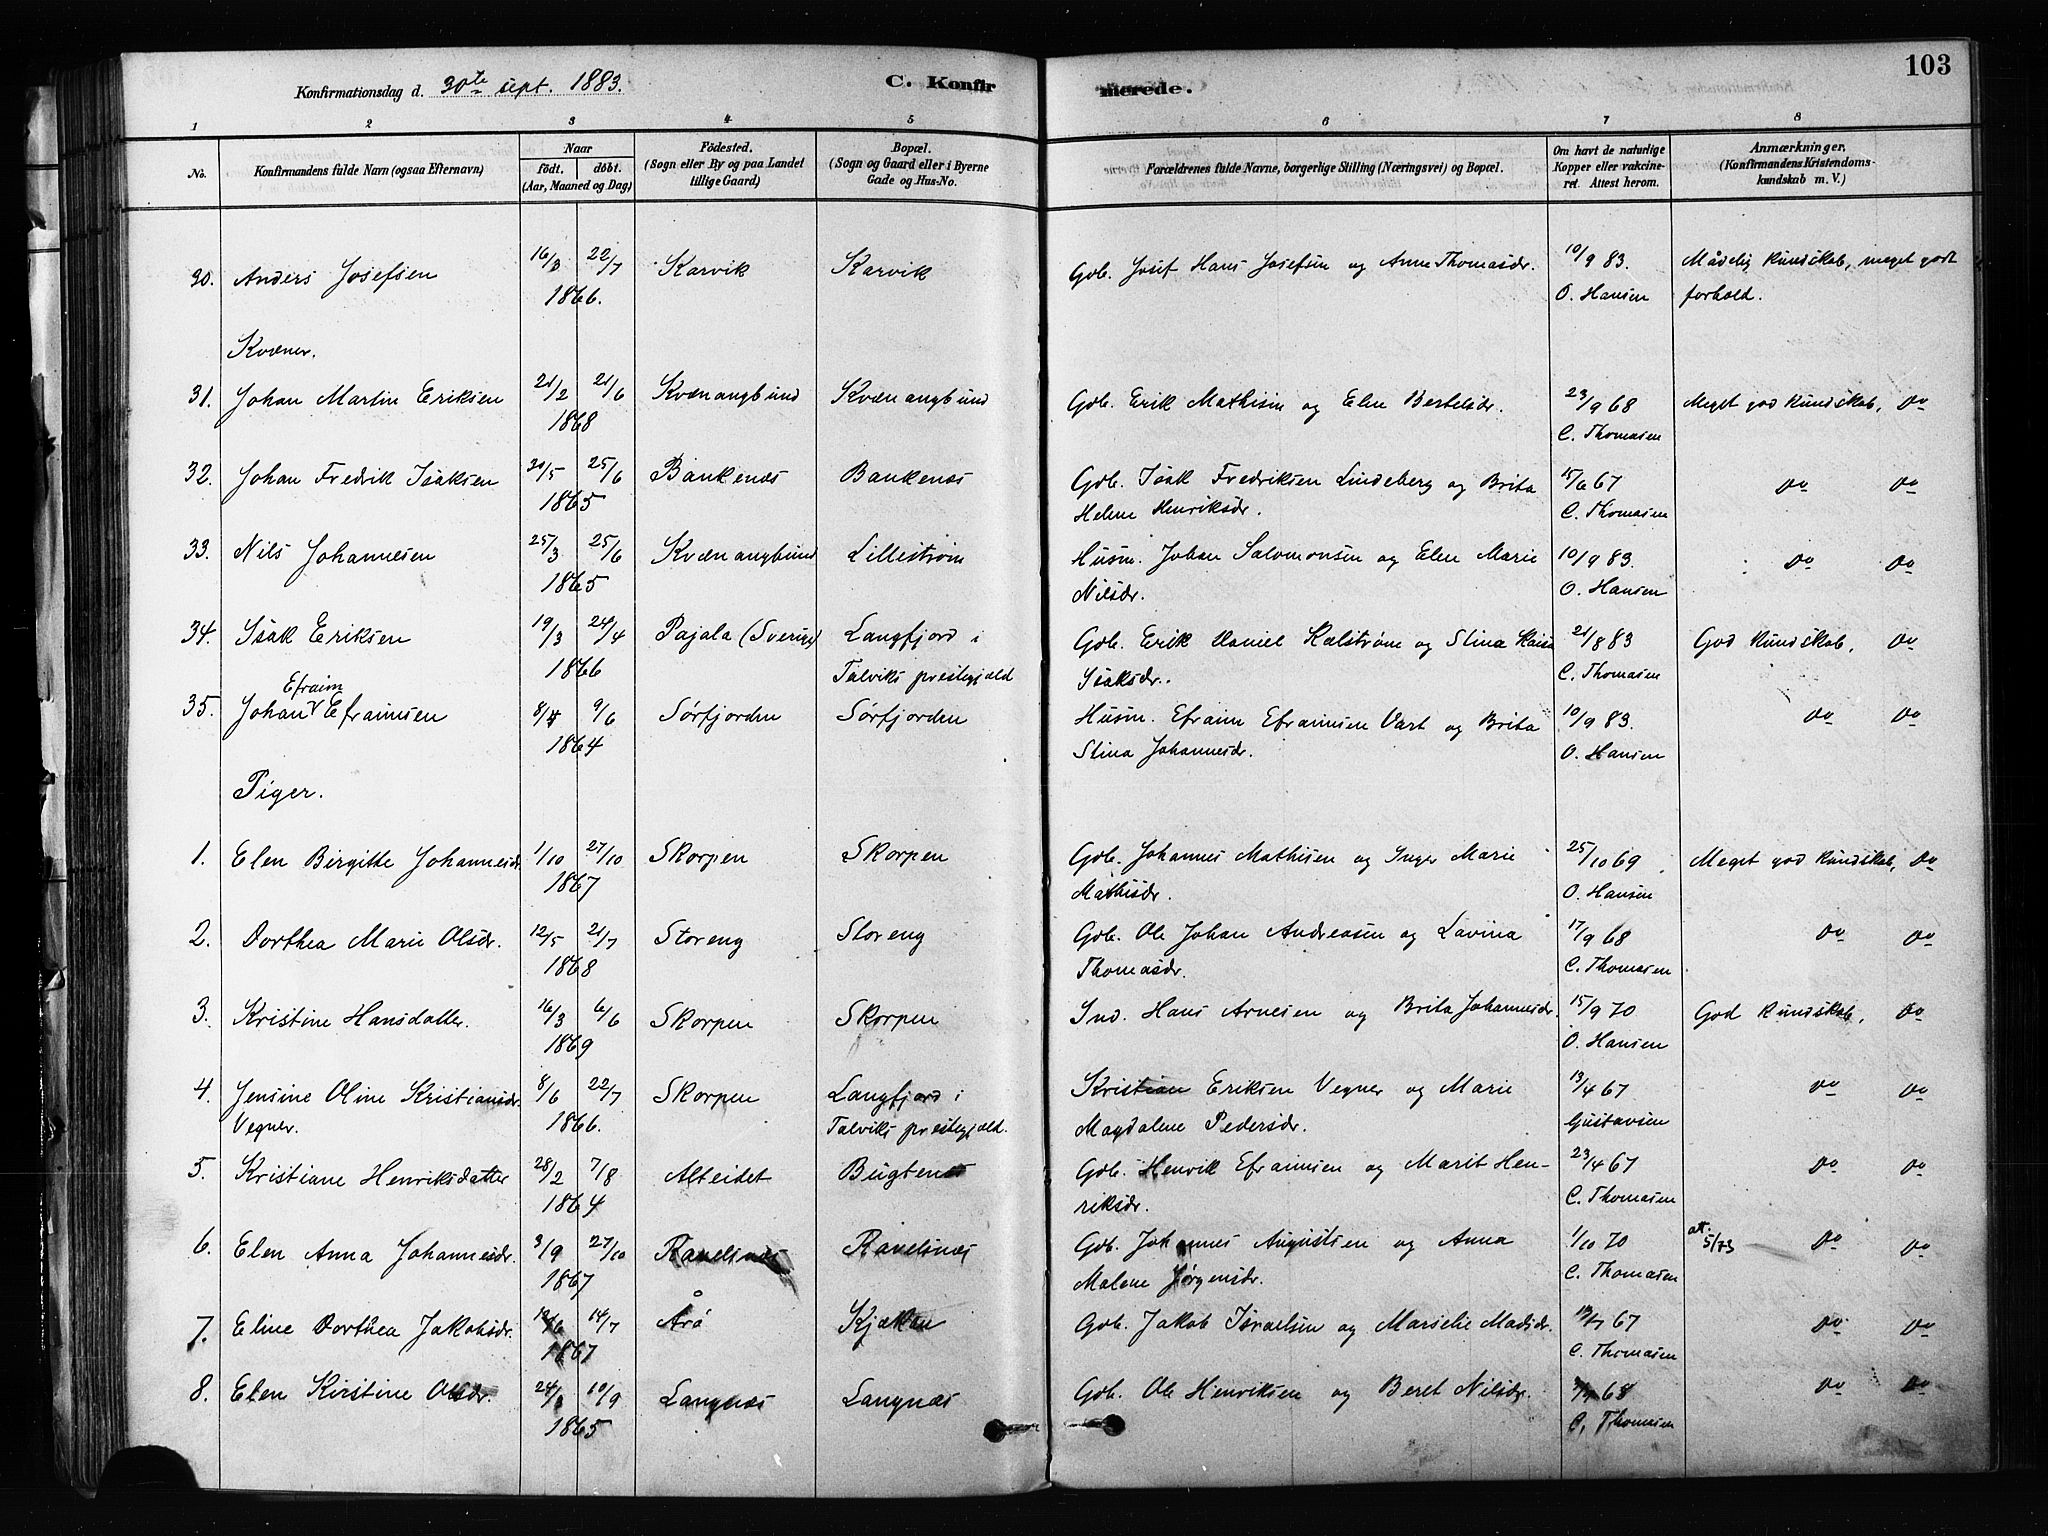 103
Konfirmationsdag d. 30te sept. 1883.
C. Konfirmerede.
1 2 3 4 5 6 7 8
No.
Konfirmandens fulde Navn (ogsaa Efternavn)
Naar
födt. döbt.
(Aar, Maaned og Dag)
Födested.
(Sogn eller By og paa Landet
tillige Gaard)
Bopæl.
(Sogn og Gaard eller i Byerne
Gade og Hus-No.
Forældrenes fulde Navne, borgerlige Stilling (Næringsvei) og Bopæl.
Om havt de naturlige
Kopper eller vakcine-
ret. Attest herom.
Anmærkninger.
(Konfirmandens Kristendoms-
kundskab m. V.)
30. Anders Josefsen 16/3 22/7 Karvik Karvik Gdb. Josef Hans Josefsen og Anne Thomasdr. 10/9 83. Mådelig kundskab, meget godt
1866. O. Hansen forhold.
Kvæner.
31. Johan Martin Eriksen 21/2 21/6 Kvænangbund Kvænangbund Gdb. Erik Mathisen og Elen Bertelsdr. 23/9 68 Meget god kundskab, Do
1868 C. Thomasen
32. Johan Fredrik Isaksen 30/5 25/6 Bankenæs Bankenæs Gdb. Isak Fredriksen Lindeberg og Brita 15/6 67 Do Do
1865 Helene Henriksdr. C. Thomasen
33. Nils Johannesen 25/3 25/6 Kvænangbund Lillestrøm Husm. Johan Salomonsen og Elen Marie 10/9 83. Do Do
1865 Nilsdr. O. Hansen
34. Isak Eriksen 19/3 24/4 Pajala (Sverige) Langfjord i Gdb. Erik Daniel Kalstrøm og Stina Kaisa 21/8 83 God kundskab, Do
1866 Talviks prestegjæld Isaksdr. C. Thomasen
Efraim
35. Johan Efraimsen 8/4 9/6 Sørfjorden Sørfjorden Husm. Efraim Efraimsen Vart og Brita 10/9 83. Do Do
1864 Stina Johannesdr. O. Hansen
Piger.
1. Elen Birgitte Johannesdr. 1/10 27/10 Skorpen Skorpen Gdb. Johannes Mathisen og Inger Marie 25/10 69 Meget god kundskab, Do
1867 Mathisdr. O. Hansen
2. Dorthea Marie Olsdr. 12/5 21/7 Storeng Storeng Gdb. Ole Johan Andreasen og Lavina 17/9 68 Do Do
1868 Thomasdr. C. Thomasen
3. Kristine Hansdatter. 16/3 6/6 Skorpen Skorpen Ind. Hans Arnesen og Brita Johannesdr. 15/9 70 God kundskab, Do
1869 O. Hansen
4. Jensine Oline Kristiansdr. 8/6 22/7 Skorpen Langfjord i Kristian Eriksen Vegner og Marie 13/4 67 Do Do
Vegner. 1866. Talviks prestegjæld. Magdalene Pedersdr. Gustavsen
5. Kristiane Henriksdatter 28/2 7/8 Alteidet Bugtenes Gdb. Henrik Efraimsen og Marit Hen- 23/4 67 Do Do
1864 riksdr. C. Thomasen
6. Elen Anna Johannesdr. 3/9 27/10 Ravelsnæs Ravelsnæs Gdb. Johannes Augustsen og Anna 1/10 70 at. 5/73 Do Do
1867 Malene Jørgensdr. C. Thomasen
7. Eline Dorthea Jakobsdr. 14/7 Årø Kjækan Gdb. Jakob Israelsen og Marselie Madsdr. 67 Do Do
1867 C. Thomasen
8. Elen Kirstine Olsdr. 10/9 Langnæs Langnæs Gdb. Ole Henriksen og Beret Nilsdr. 68 Do Do
1865 C. Thomasen